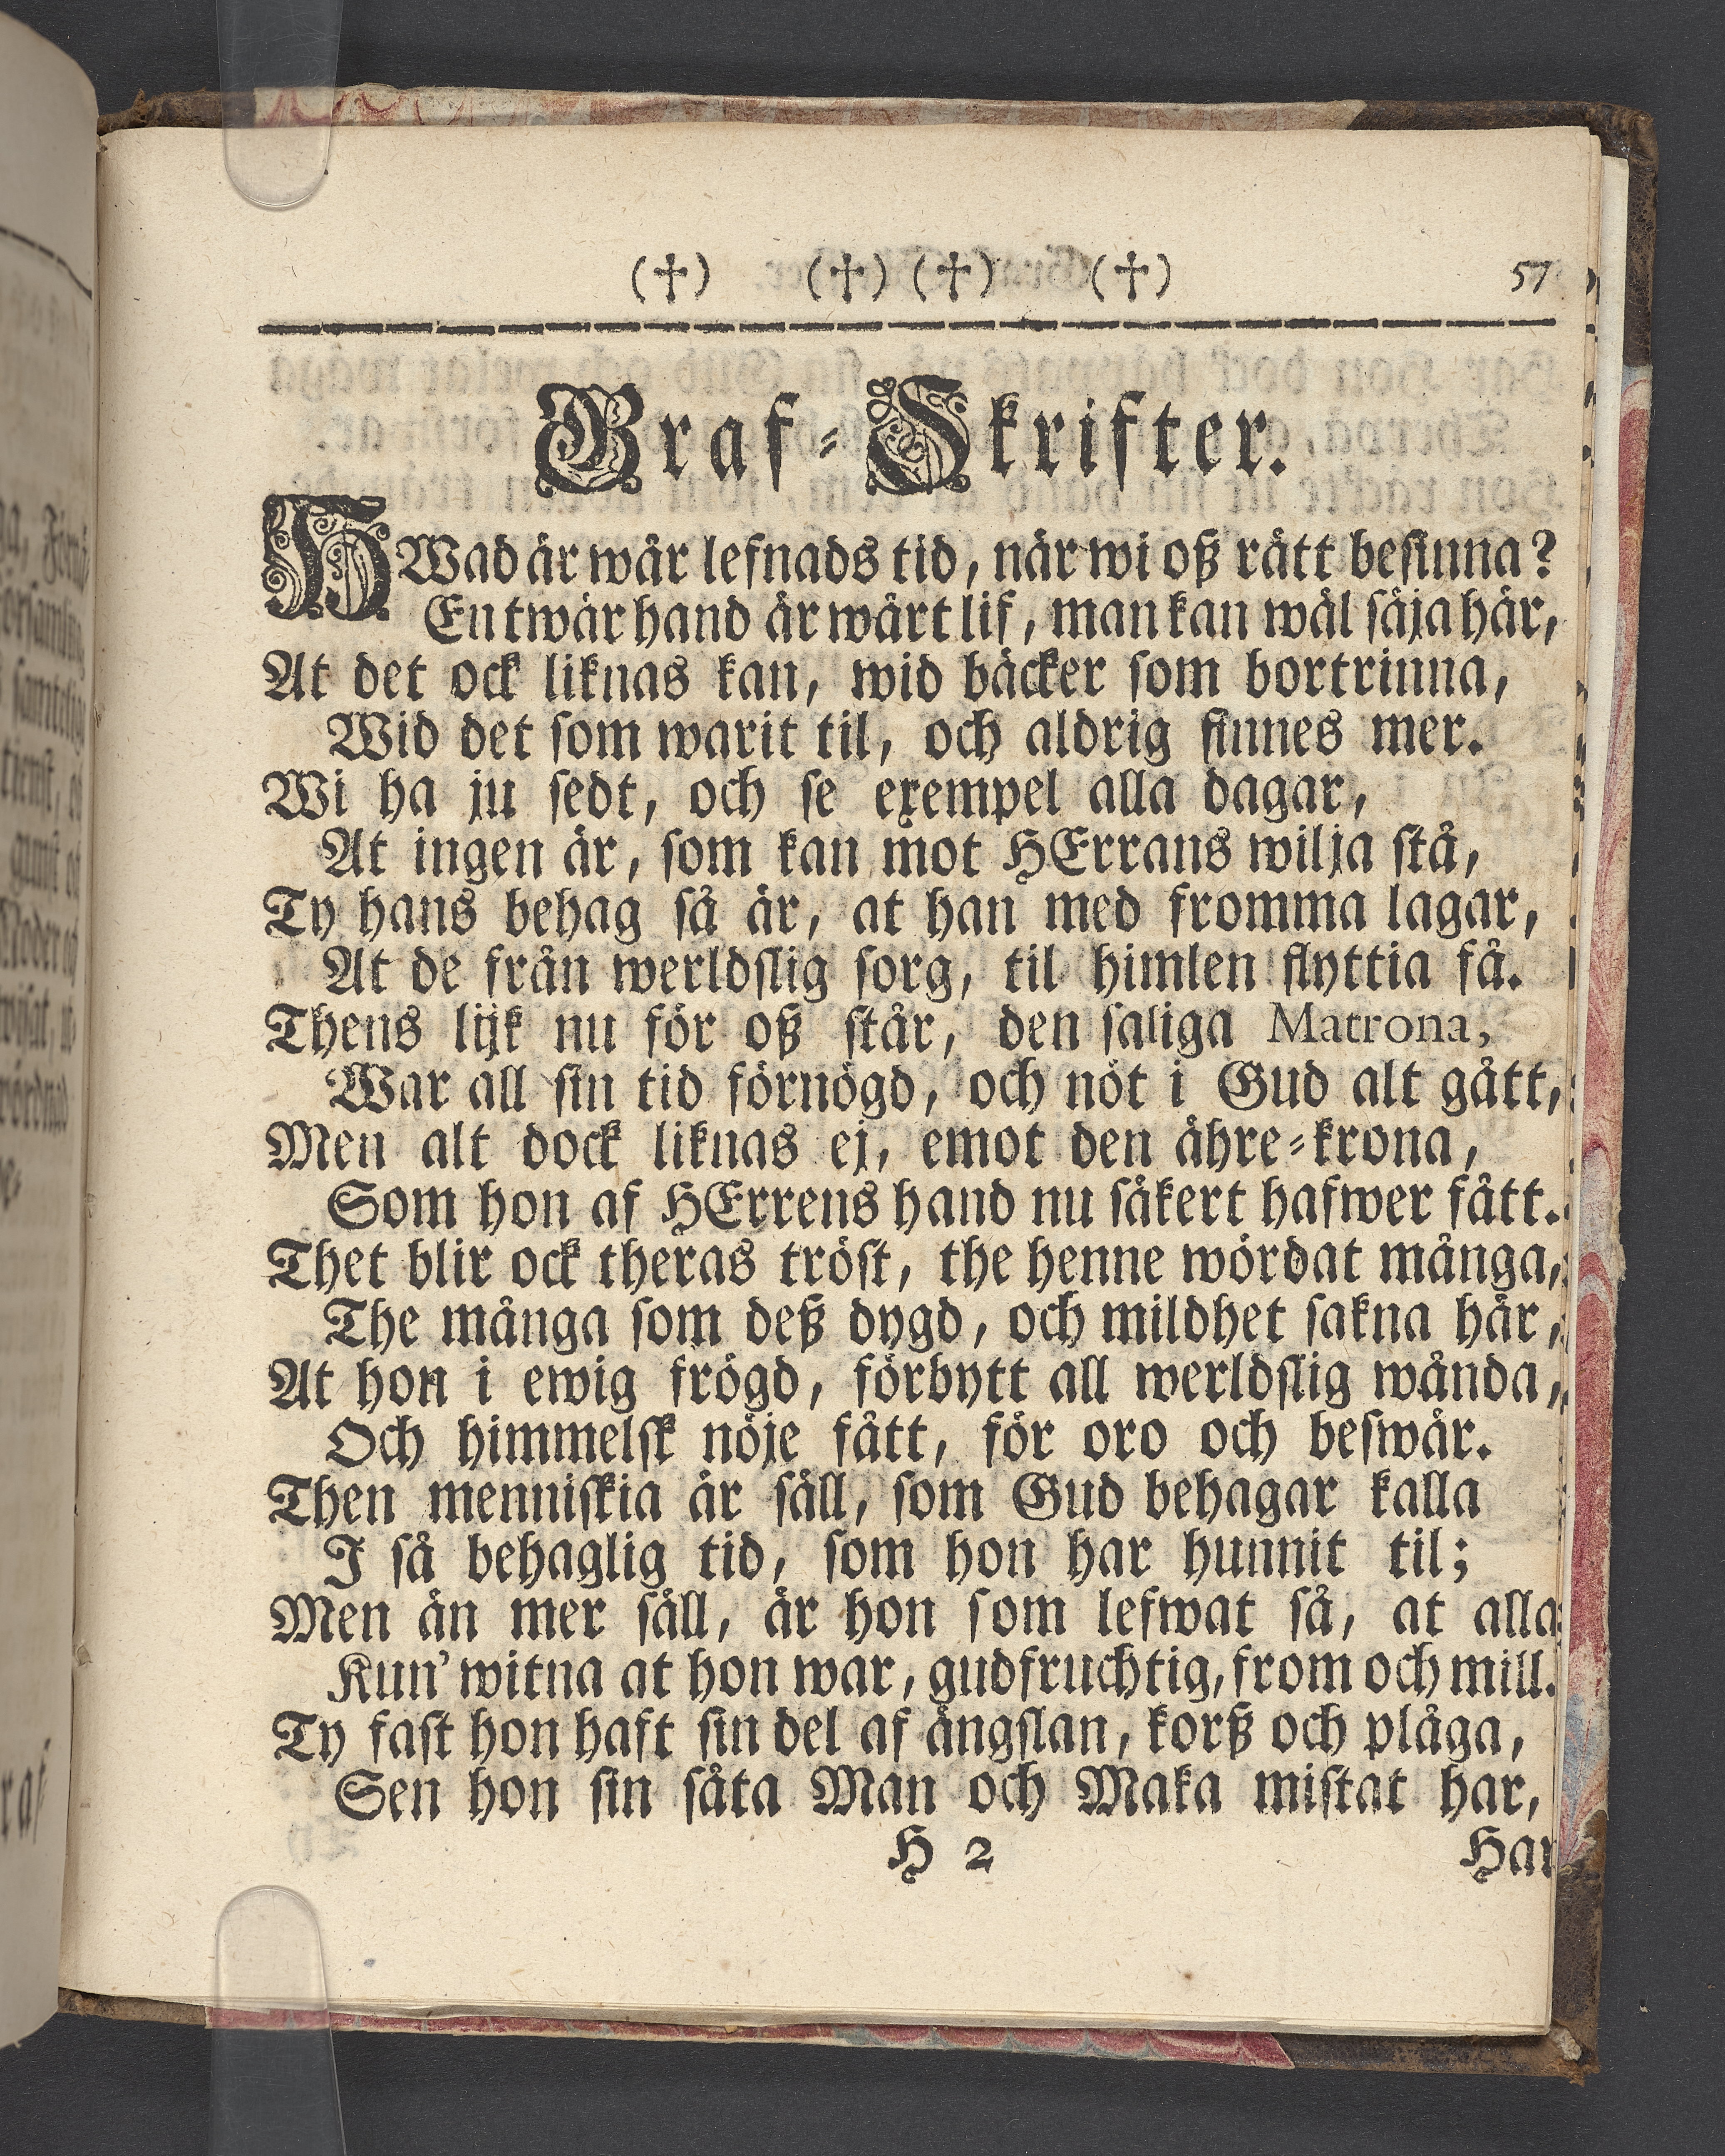 (†) (†) (†) (†) 57
Graf-Skrifter.
HWad är wår lefnads tid, när wi oß rätt besinna?
En twär hand är wårt lif, man kan wäl säja här,
At det ock liknas kan, wid bäcker som bortrinna,
Wid det som warit til, och aldrig finnes mer.
Wi ha ju sedt, och se exempel alla dagar,
At ingen är, som kan mot HErrans wilja stå,
Ty hans behag så är, at han med fromma lagar,
At de från werldslig sorg, til himlen flyttia få.
Thens lijk nu för oß står, den saliga Matrona,
War all sin tid förnögd, och nöt i Gud alt gått,
Men alt dock liknas ej, emot den ähre-krona,
Som hon af HErrens hand nu säkert hafwer fått.
Thet blir ock theras tröst, the henne wördat många,
The många som deß dygd, och mildhet sakna här,
At hon i ewig frögd, förbytt all werldslig wånda,
Och himmelsk nöje fått, för oro och beswär.
Then menniskia är säll, som Gud behagar kalla
I så behaglig tid, som hon har hunnit til;
Men än mer säll, är hon som lefwat så, at alla
Kun' witna at hon war, gudfruchtig, from och mill.
Ty fast hon haft sin del af ängslan, korß och plåga,
Sen hon sin såta Man och Maka mistat har,
H 2 Har